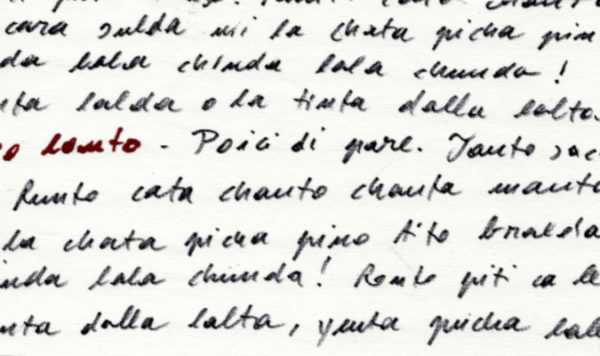 cara sulda mi la chata picha pin
da lala chinda lala chunda!
nta lalda o la tinta dalla lalta
o lamto - Poici di pare. Tanto sac
Runto cata chanto chanta manto
la chata picha pino tito bralda
inda lala chinda! Ronto piti ca le
nta dalla lalta, yinta picha lall